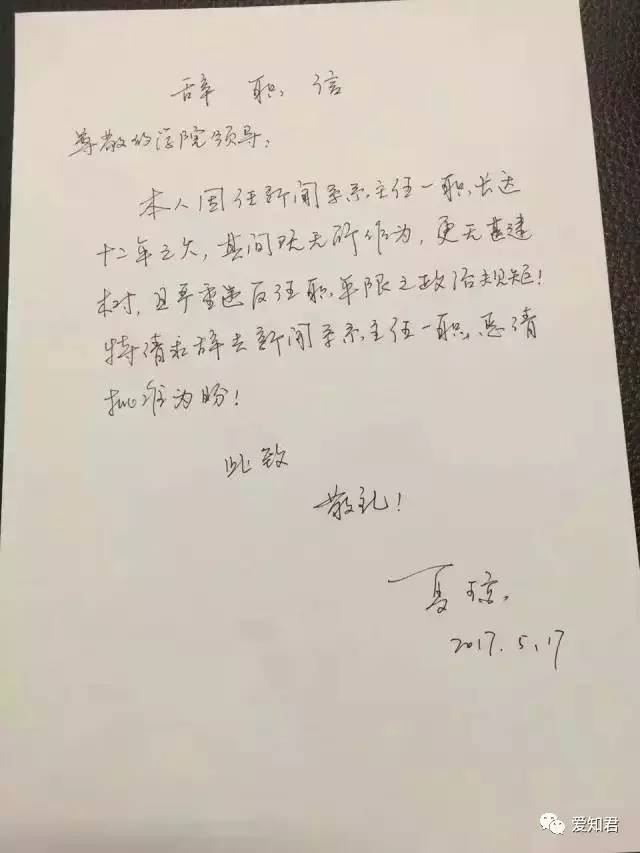 辞职信
尊敬的学院领导：
本人因任新闻系系主任一职长达
十二年之久，其间既无所作为，更无甚建
树，且严重违反任职年限之政治规矩！
特请求辞去新闻系系主任一职，恳请
批准为盼！
此致
敬礼！
夏琼
2017.5.17
爱知君